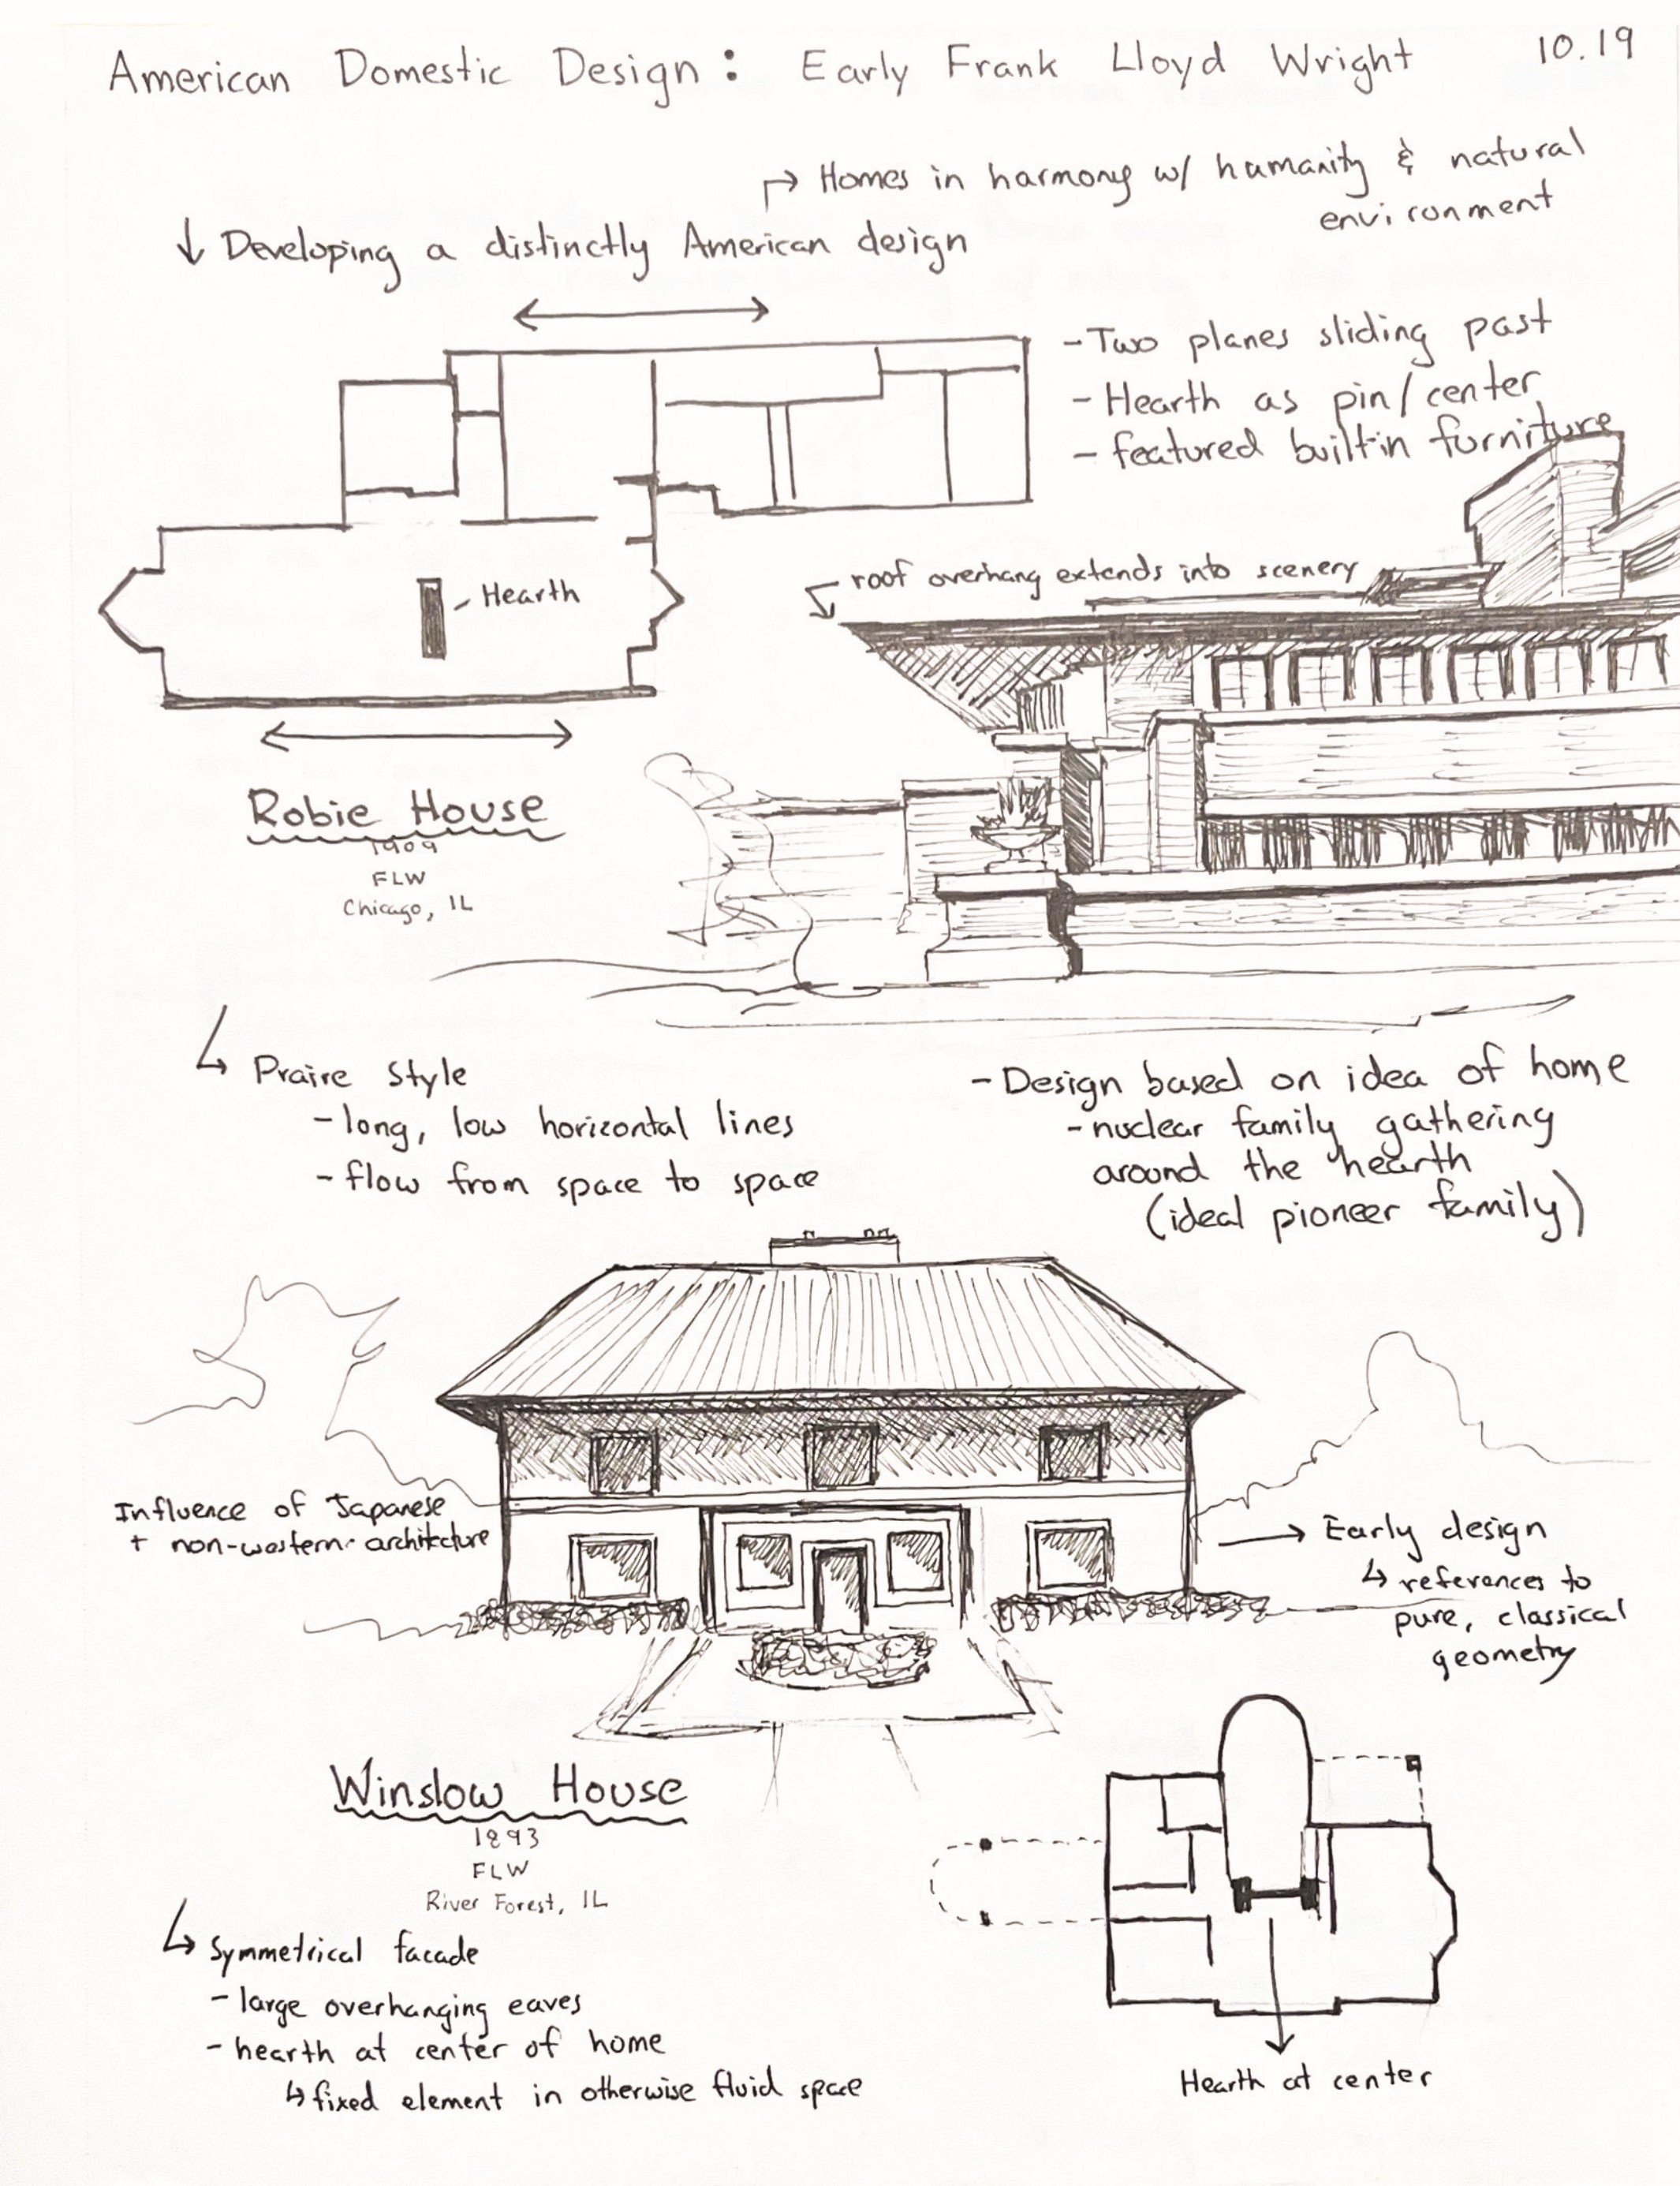 American Domestic Design: Early Frank Lloyd Wright 10.19
Homes in harmony w/ humanity & natural
environment
Developing a distinctly American design
- Two planes sliding past
- Hearth as pin/center
- featured built-in furniture
roof overhang extends into scenery
Hearth
Robie House
1909
FLW
Chicago, IL
Praire Style
- long, low horizontal lines
- flow from space to space
- Design based on idea of home
- nuclear family gathering
around the hearth
(ideal pioneer family)
Influence of Japanese
+ non-western architecture
Early design
references to
pure, classical
geometry
Winslow House
1893
FLW
River Forest, IL
Symmetrical facade
- large overhanging eaves
- hearth at center of home
fixed element in otherwise fluid space
Hearth at center